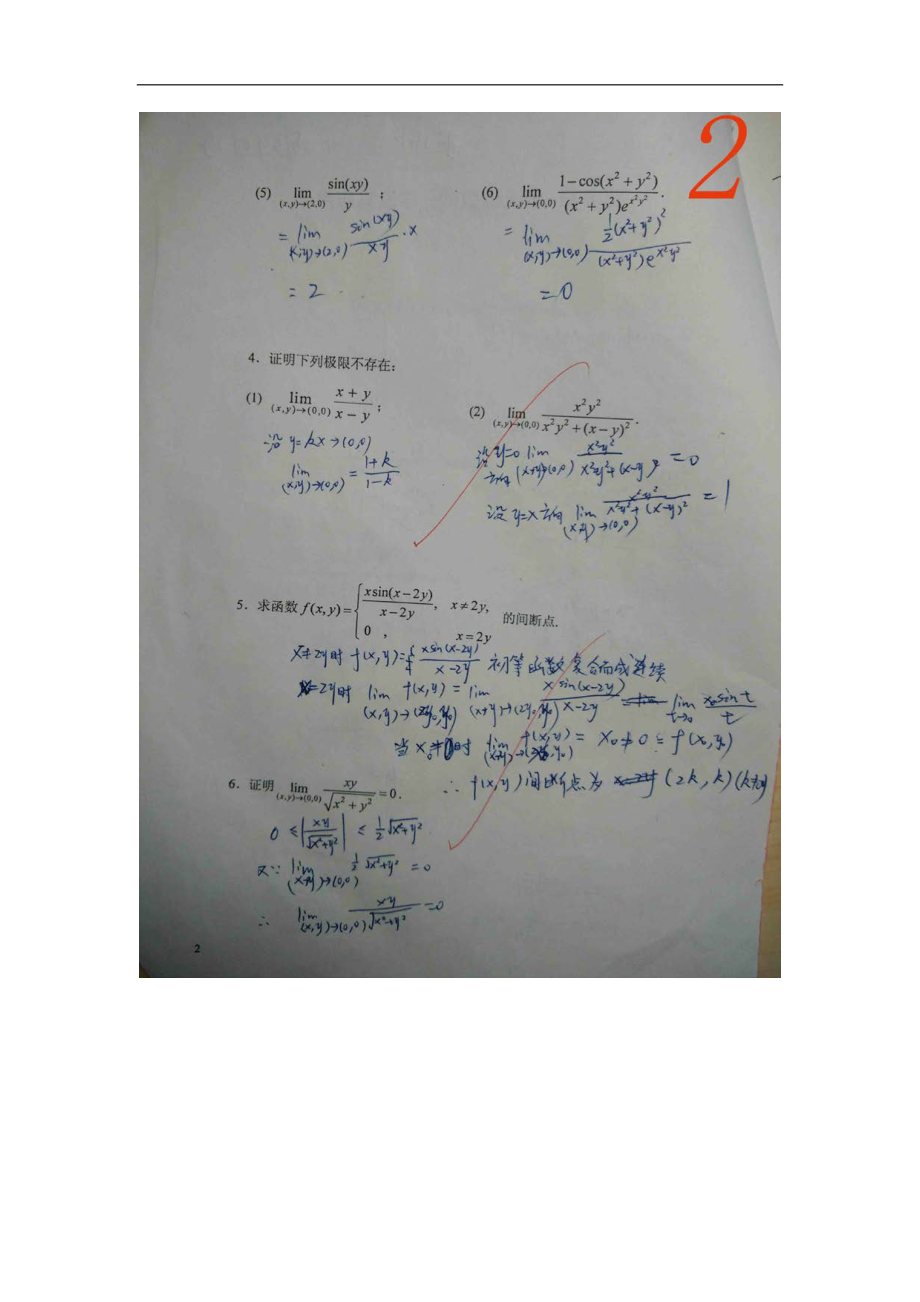 2
(5) lim (x,y)→(2,0) sin(xy)/y ;
(6) lim (x,y)→(0,0) (1−cos(x²+y²))/((x²+y²)e^(x²y²)) .
= lim (x,y)→(2,0) sin(xy)/xy · x
= lim (x,y)→(0,0) ½(x²+y²)²/((x²+y²)e^(x²y²))
= 2
= 0
4. 证明下列极限不存在:
(1) lim (x,y)→(0,0) (x+y)/(x−y) ;
(2) lim (x,y)→(0,0) x²y²/(x²y²+(x−y)²) .
沿 y=kx→(0,0)
lim (x,y)→(0,0) = (1+k)/(1−k)
沿y=0方向 lim (x,y)→(0,0) x²y²/(x²y²+(x−y)²) = 0
沿y=x方向 lim (x,y)→(0,0) x²y²/(x²y²+(x−y)²) = 1
5. 求函数 f(x,y)= { xsin(x−2y)/(x−2y), x≠2y, 0 , x=2y 的间断点.
x≠2y时 f(x,y)= xsin(x−2y)/(x−2y) 初等函数复合而成连续
x=2y时 lim (x,y)→(2y₀,y₀) f(x,y) = lim (x,y)→(2y₀,y₀) x sin(x−2y)/(x−2y) = lim t→0 x₀sint/t
当x₀≠0时 lim (x,y)→(x₀,y₀) f(x,y) = x₀≠0=f(x₀,y₀)
∴ f(x,y)间断点为 (2k,k)
6. 证明 lim (x,y)→(0,0) xy/√(x²+y²) =0 .
0 ≤ |xy/√(x²+y²)| ≤ ½√(x²+y²)
又∵ lim (x,y)→(0,0) ½√(x²+y²) = 0
∴ lim (x,y)→(0,0) xy/√(x²+y²) =0
2